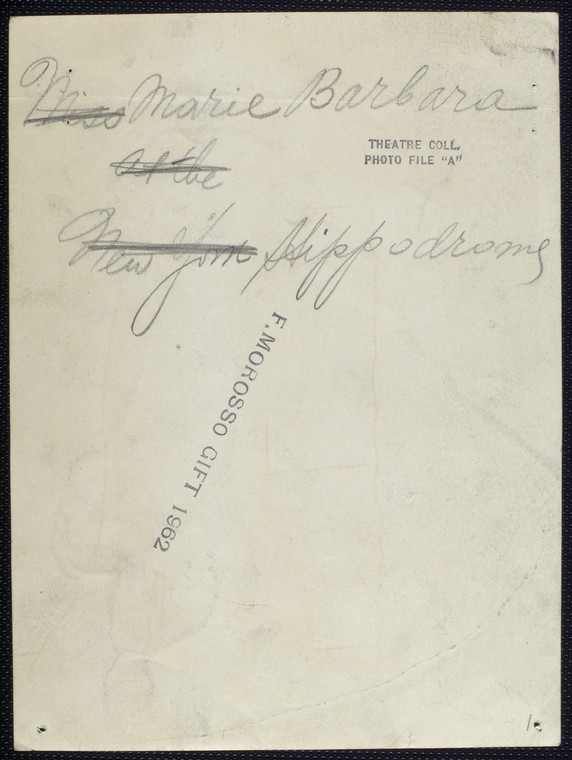 Miss Marie Barbara
at the
New York Hippodrome
THEATRE COLL.
PHOTO FILE "A"
F. MOROSSO GIFT 1962
1